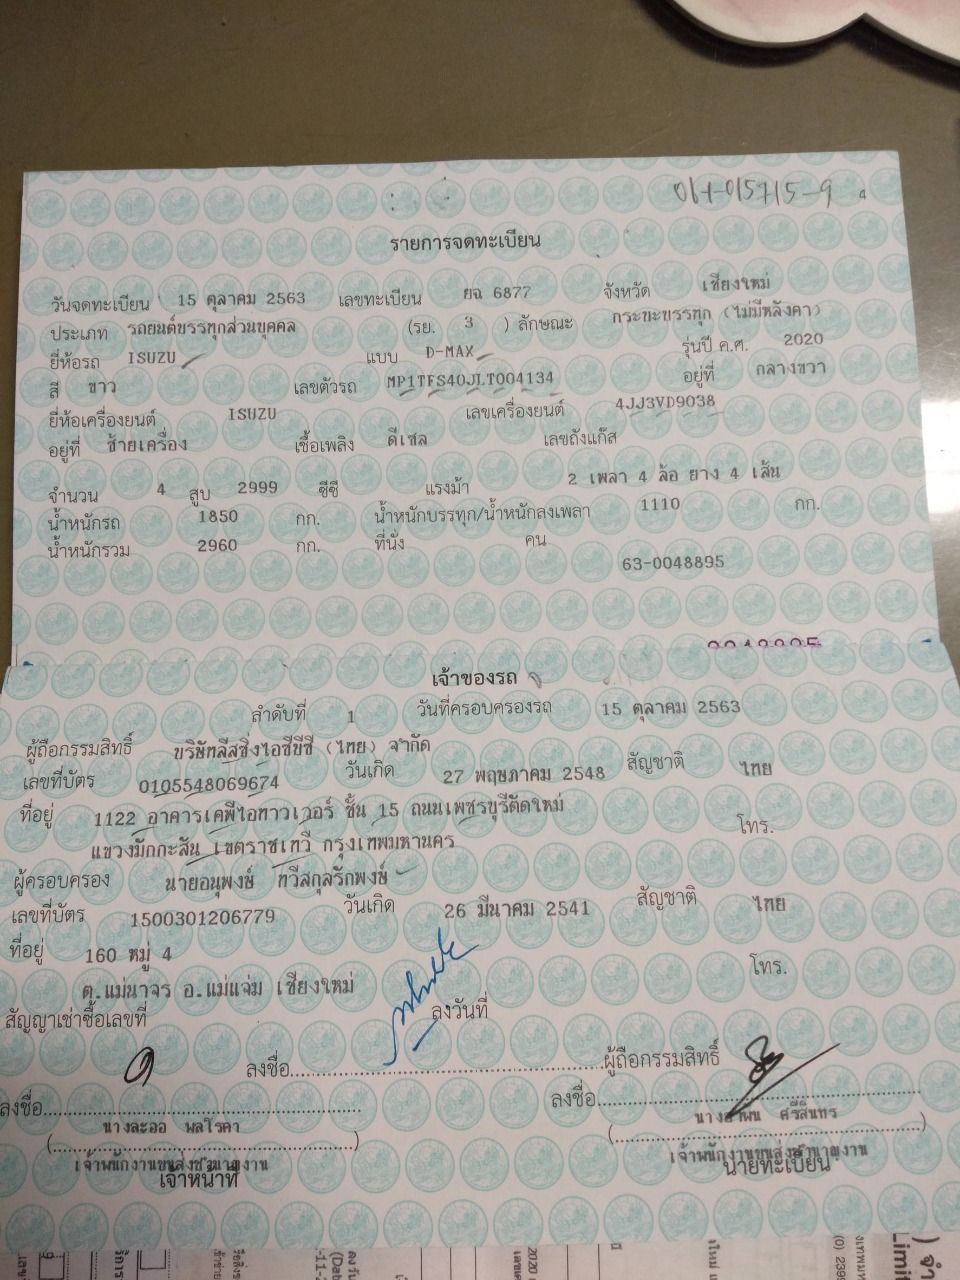 061-015715-9
รายการจดทะเบียน
วันจดทะเบียน 15 ตุลาคม 2563 เลขทะเบียน ยฉ 6877 จังหวัด เชียงใหม่
ประเภท รถยนต์บรรทุกส่วนบุคคล (รย. 3 ) ลักษณะ กระบะบรรทุก (ไม่มีหลังคา)
ยี่ห้อรถ ISUZU แบบ D-MAX รุ่นปี ค.ศ. 2020
สี ขาว เลขตัวรถ MP1TFS40JLT004134 อยู่ที่ กลางขวา
ยี่ห้อเครื่องยนต์ ISUZU เลขเครื่องยนต์ 4JJ3VD9038
อยู่ที่ ซ้ายเครื่อง เชื้อเพลิง ดีเซล เลขถังแก๊ส
จำนวน 4 สูบ 2999 ซีซี แรงม้า 2 เพลา 4 ล้อ ยาง 4 เส้น
น้ำหนักรถ 1850 กก. น้ำหนักบรรทุก/น้ำหนักลงเพลา 1110 กก.
น้ำหนักรวม 2960 กก. ที่นั่ง คน
63-0048895
เจ้าของรถ
ลำดับที่ 1 วันที่ครอบครองรถ 15 ตุลาคม 2563
ผู้ถือกรรมสิทธิ์ บริษัทลีสซิ่งไอซีบีซี (ไทย) จำกัด
เลขที่บัตร 0105548069674 วันเกิด 27 พฤษภาคม 2548 สัญชาติ ไทย
ที่อยู่ 1122 อาคารเคพีไอทาวเวอร์ ชั้น 15 ถนนเพชรบุรีตัดใหม่
โทร.
แขวงมักกะสัน เขตราชเทวี กรุงเทพมหานคร
ผู้ครอบครอง นายอนุพงษ์ ทวีสกุลรักพงษ์
เลขที่บัตร 1500301206779 วันเกิด 26 มีนาคม 2541 สัญชาติ ไทย
ที่อยู่ 160 หมู่ 4
โทร.
ต.แม่นาจร อ.แม่แจ่ม เชียงใหม่
สัญญาเช่าซื้อเลขที่ ลงวันที่
ลงชื่อ ผู้ถือกรรมสิทธิ์
ลงชื่อ ลงชื่อ
นางละออ พลโรคา ศรีสินทร
เจ้าพนักงานขนส่งชำนาญงาน เจ้าพนักงานขนส่งชำนาญงาน
เจ้าหน้าที่ นายทะเบียน